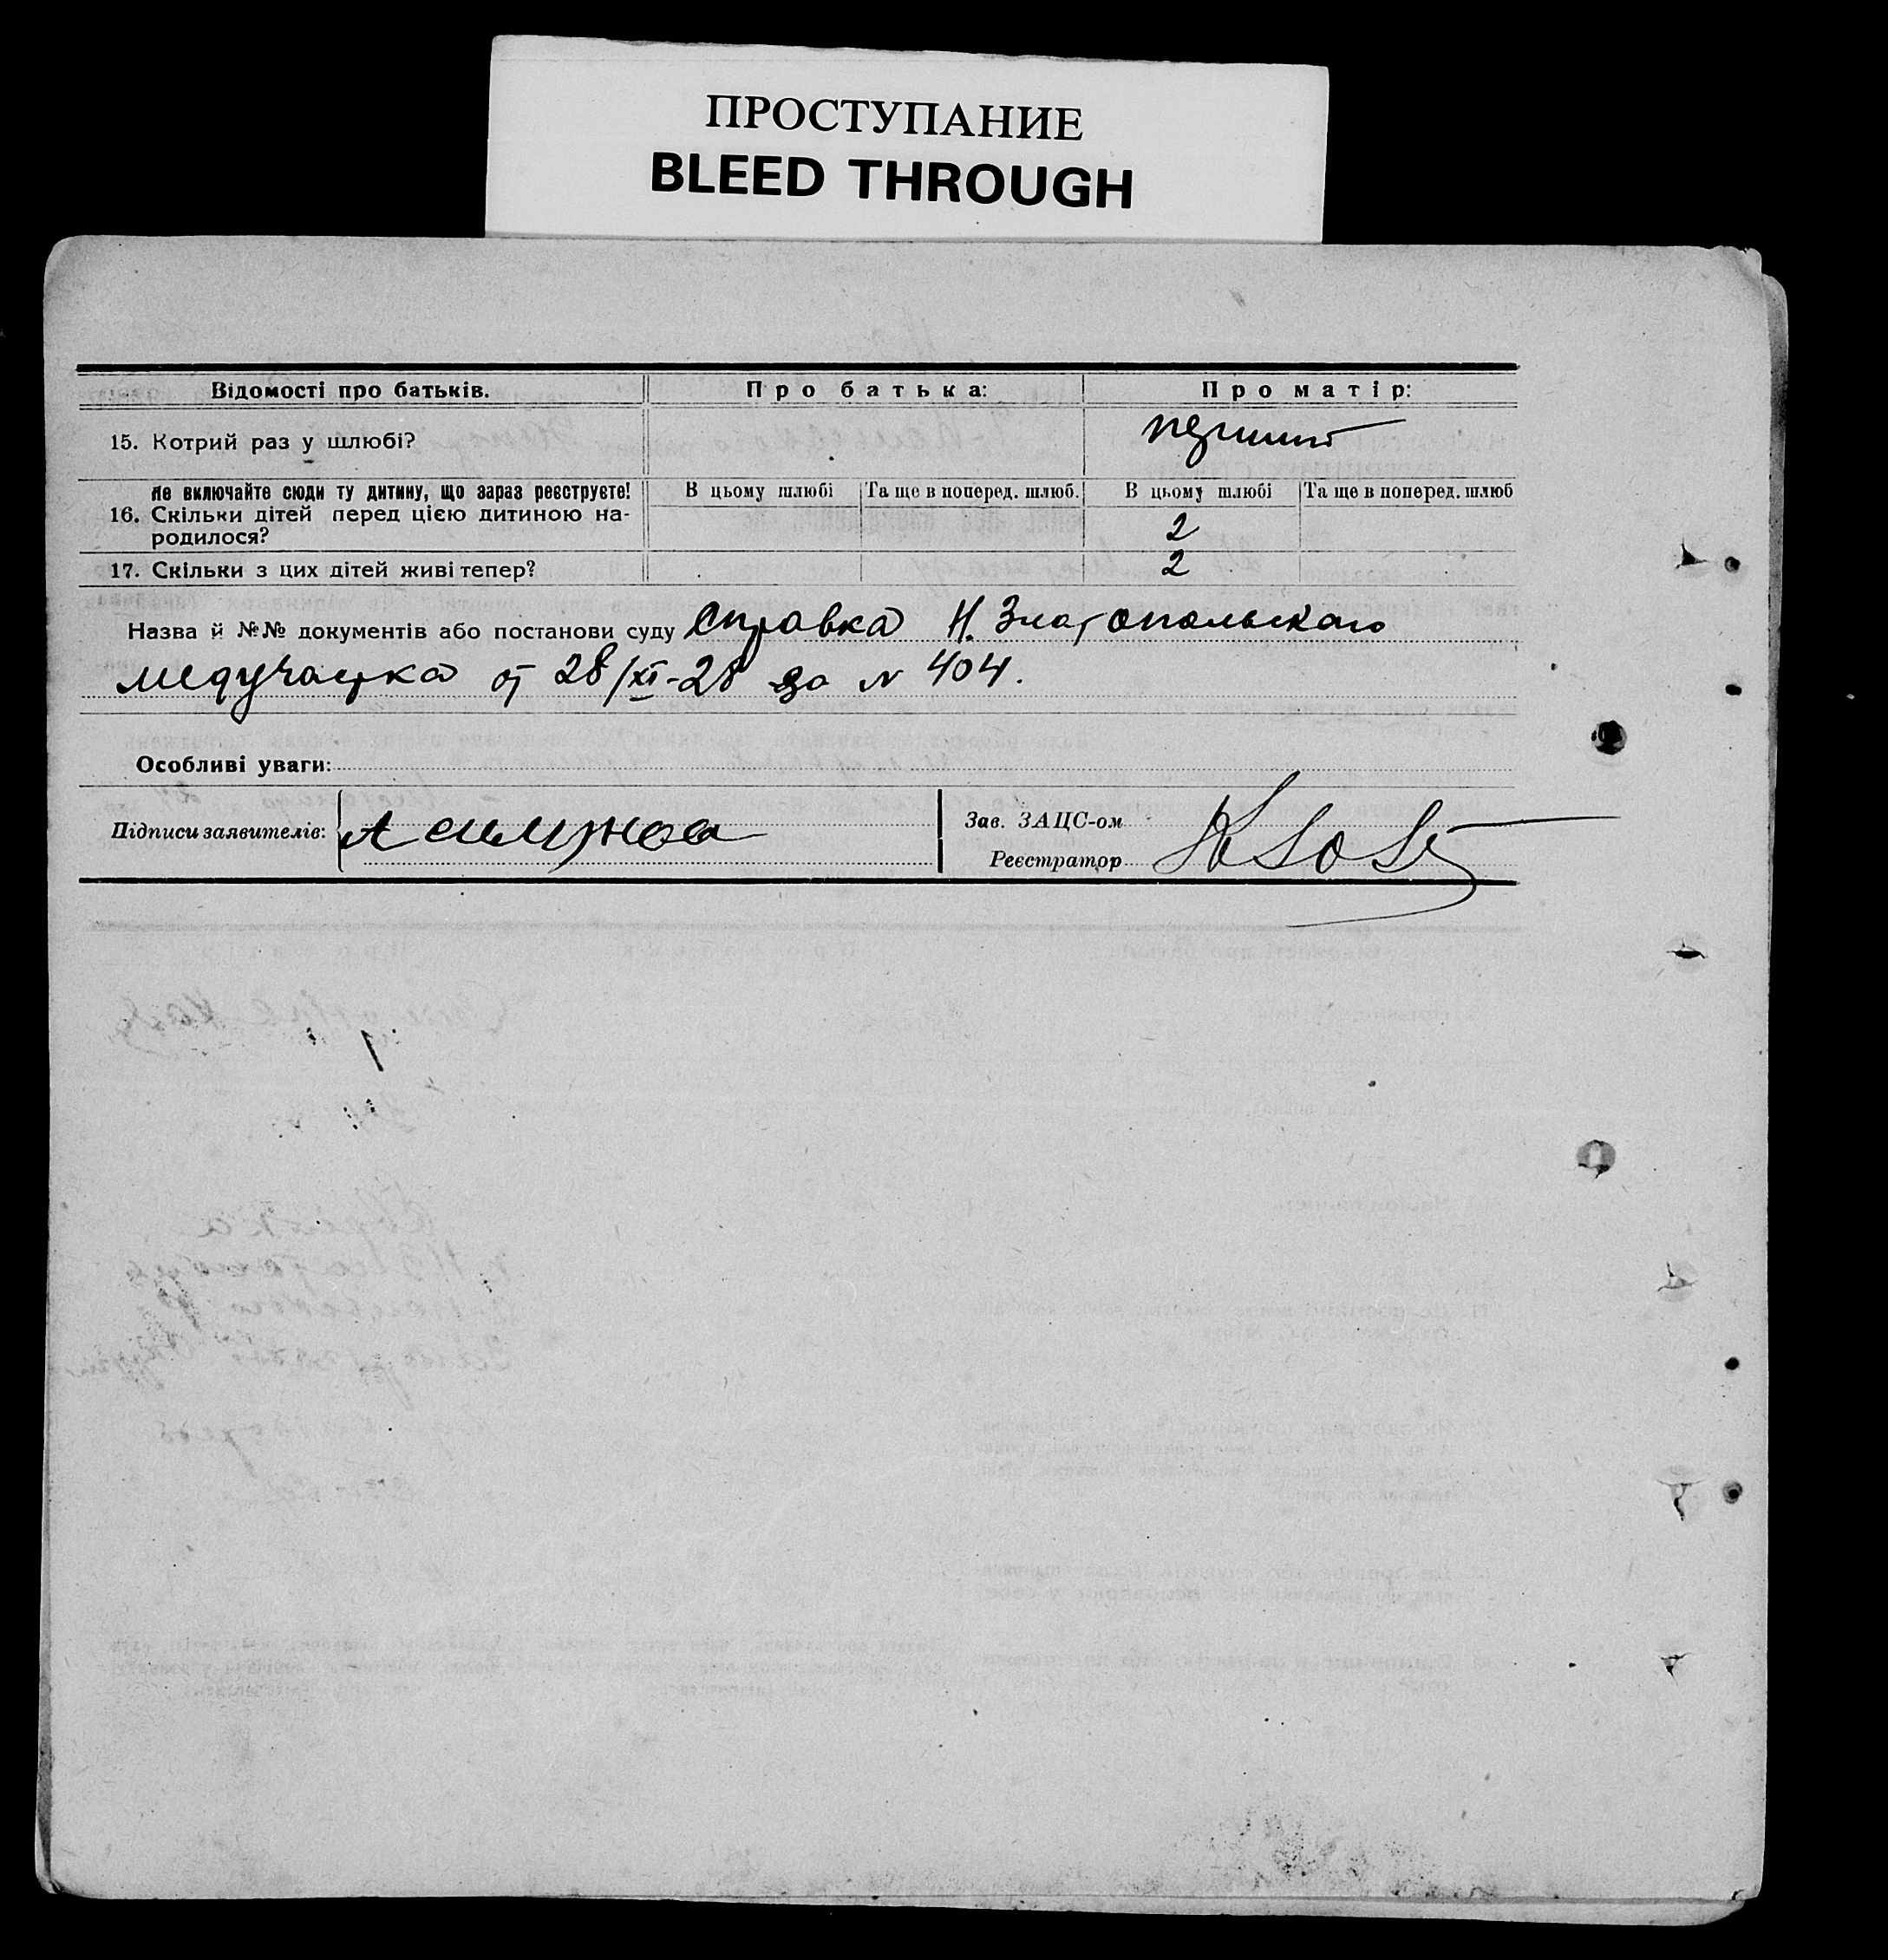 ПРОСТУПАНИЕ
BLEED THROUGH
Відомості про батьків. Про батька: Про матір:
15. Котрий раз у шлюбі? перший
Не включайте сюди ту дитину, що зараз реєструєте! В цьому шлюбі Та ще в поперед. шлюб. В цьому шлюбі Та ще в поперед. шлюб
16. Скільки дітей перед цією дитиною на-
родилося? 2
17. Скільки з цих дітей живі тепер? 2
Назва й №№ документів або постанови суду Справка Н. Златопольского
медучастка от 28/XI-28 за N 404.
Особливі уваги:
Підписи заявителів:
Зав. ЗАЦС-ом
Реєстратор